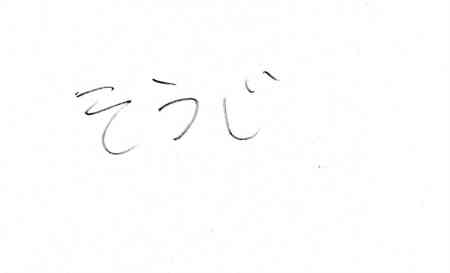 そうじ